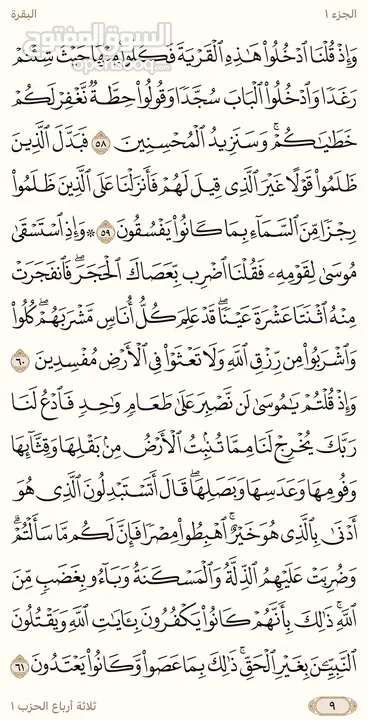 الجزء ١ البقرة
السوق المفتوح
opensooq.com
وَإِذْ قُلْنَا ٱدْخُلُوا۟ هَٰذِهِ ٱلْقَرْيَةَ فَكُلُوا۟ مِنْهَا حَيْثُ شِئْتُمْ
رَغَدًا وَٱدْخُلُوا۟ ٱلْبَابَ سُجَّدًا وَقُولُوا۟ حِطَّةٌ نَّغْفِرْ لَكُمْ
خَطَٰيَٰكُمْ ۚ وَسَنَزِيدُ ٱلْمُحْسِنِينَ ٥٨ فَبَدَّلَ ٱلَّذِينَ
ظَلَمُوا۟ قَوْلًا غَيْرَ ٱلَّذِى قِيلَ لَهُمْ فَأَنزَلْنَا عَلَى ٱلَّذِينَ ظَلَمُوا۟
رِجْزًا مِّنَ ٱلسَّمَآءِ بِمَا كَانُوا۟ يَفْسُقُونَ ٥٩ ۞ وَإِذِ ٱسْتَسْقَىٰ
مُوسَىٰ لِقَوْمِهِۦ فَقُلْنَا ٱضْرِب بِّعَصَاكَ ٱلْحَجَرَ ۖ فَٱنفَجَرَتْ
مِنْهُ ٱثْنَتَا عَشْرَةَ عَيْنًا ۖ قَدْ عَلِمَ كُلُّ أُنَاسٍ مَّشْرَبَهُمْ ۖ كُلُوا۟
وَٱشْرَبُوا۟ مِن رِّزْقِ ٱللَّهِ وَلَا تَعْثَوْا۟ فِى ٱلْأَرْضِ مُفْسِدِينَ ٦٠
وَإِذْ قُلْتُمْ يَٰمُوسَىٰ لَن نَّصْبِرَ عَلَىٰ طَعَامٍ وَٰحِدٍ فَٱدْعُ لَنَا
رَبَّكَ يُخْرِجْ لَنَا مِمَّا تُنۢبِتُ ٱلْأَرْضُ مِنۢ بَقْلِهَا وَقِثَّآئِهَا
وَفُومِهَا وَعَدَسِهَا وَبَصَلِهَا ۖ قَالَ أَتَسْتَبْدِلُونَ ٱلَّذِى هُوَ
أَدْنَىٰ بِٱلَّذِى هُوَ خَيْرٌ ۚ ٱهْبِطُوا۟ مِصْرًا فَإِنَّ لَكُم مَّا سَأَلْتُمْ ۗ
وَضُرِبَتْ عَلَيْهِمُ ٱلذِّلَّةُ وَٱلْمَسْكَنَةُ وَبَآءُو بِغَضَبٍ مِّنَ
ٱللَّهِ ۗ ذَٰلِكَ بِأَنَّهُمْ كَانُوا۟ يَكْفُرُونَ بِـَٔايَٰتِ ٱللَّهِ وَيَقْتُلُونَ
ٱلنَّبِيِّـۧنَ بِغَيْرِ ٱلْحَقِّ ۗ ذَٰلِكَ بِمَا عَصَوا۟ وَّكَانُوا۟ يَعْتَدُونَ ٦١
٩ ثلاثة أرباع الحزب ١